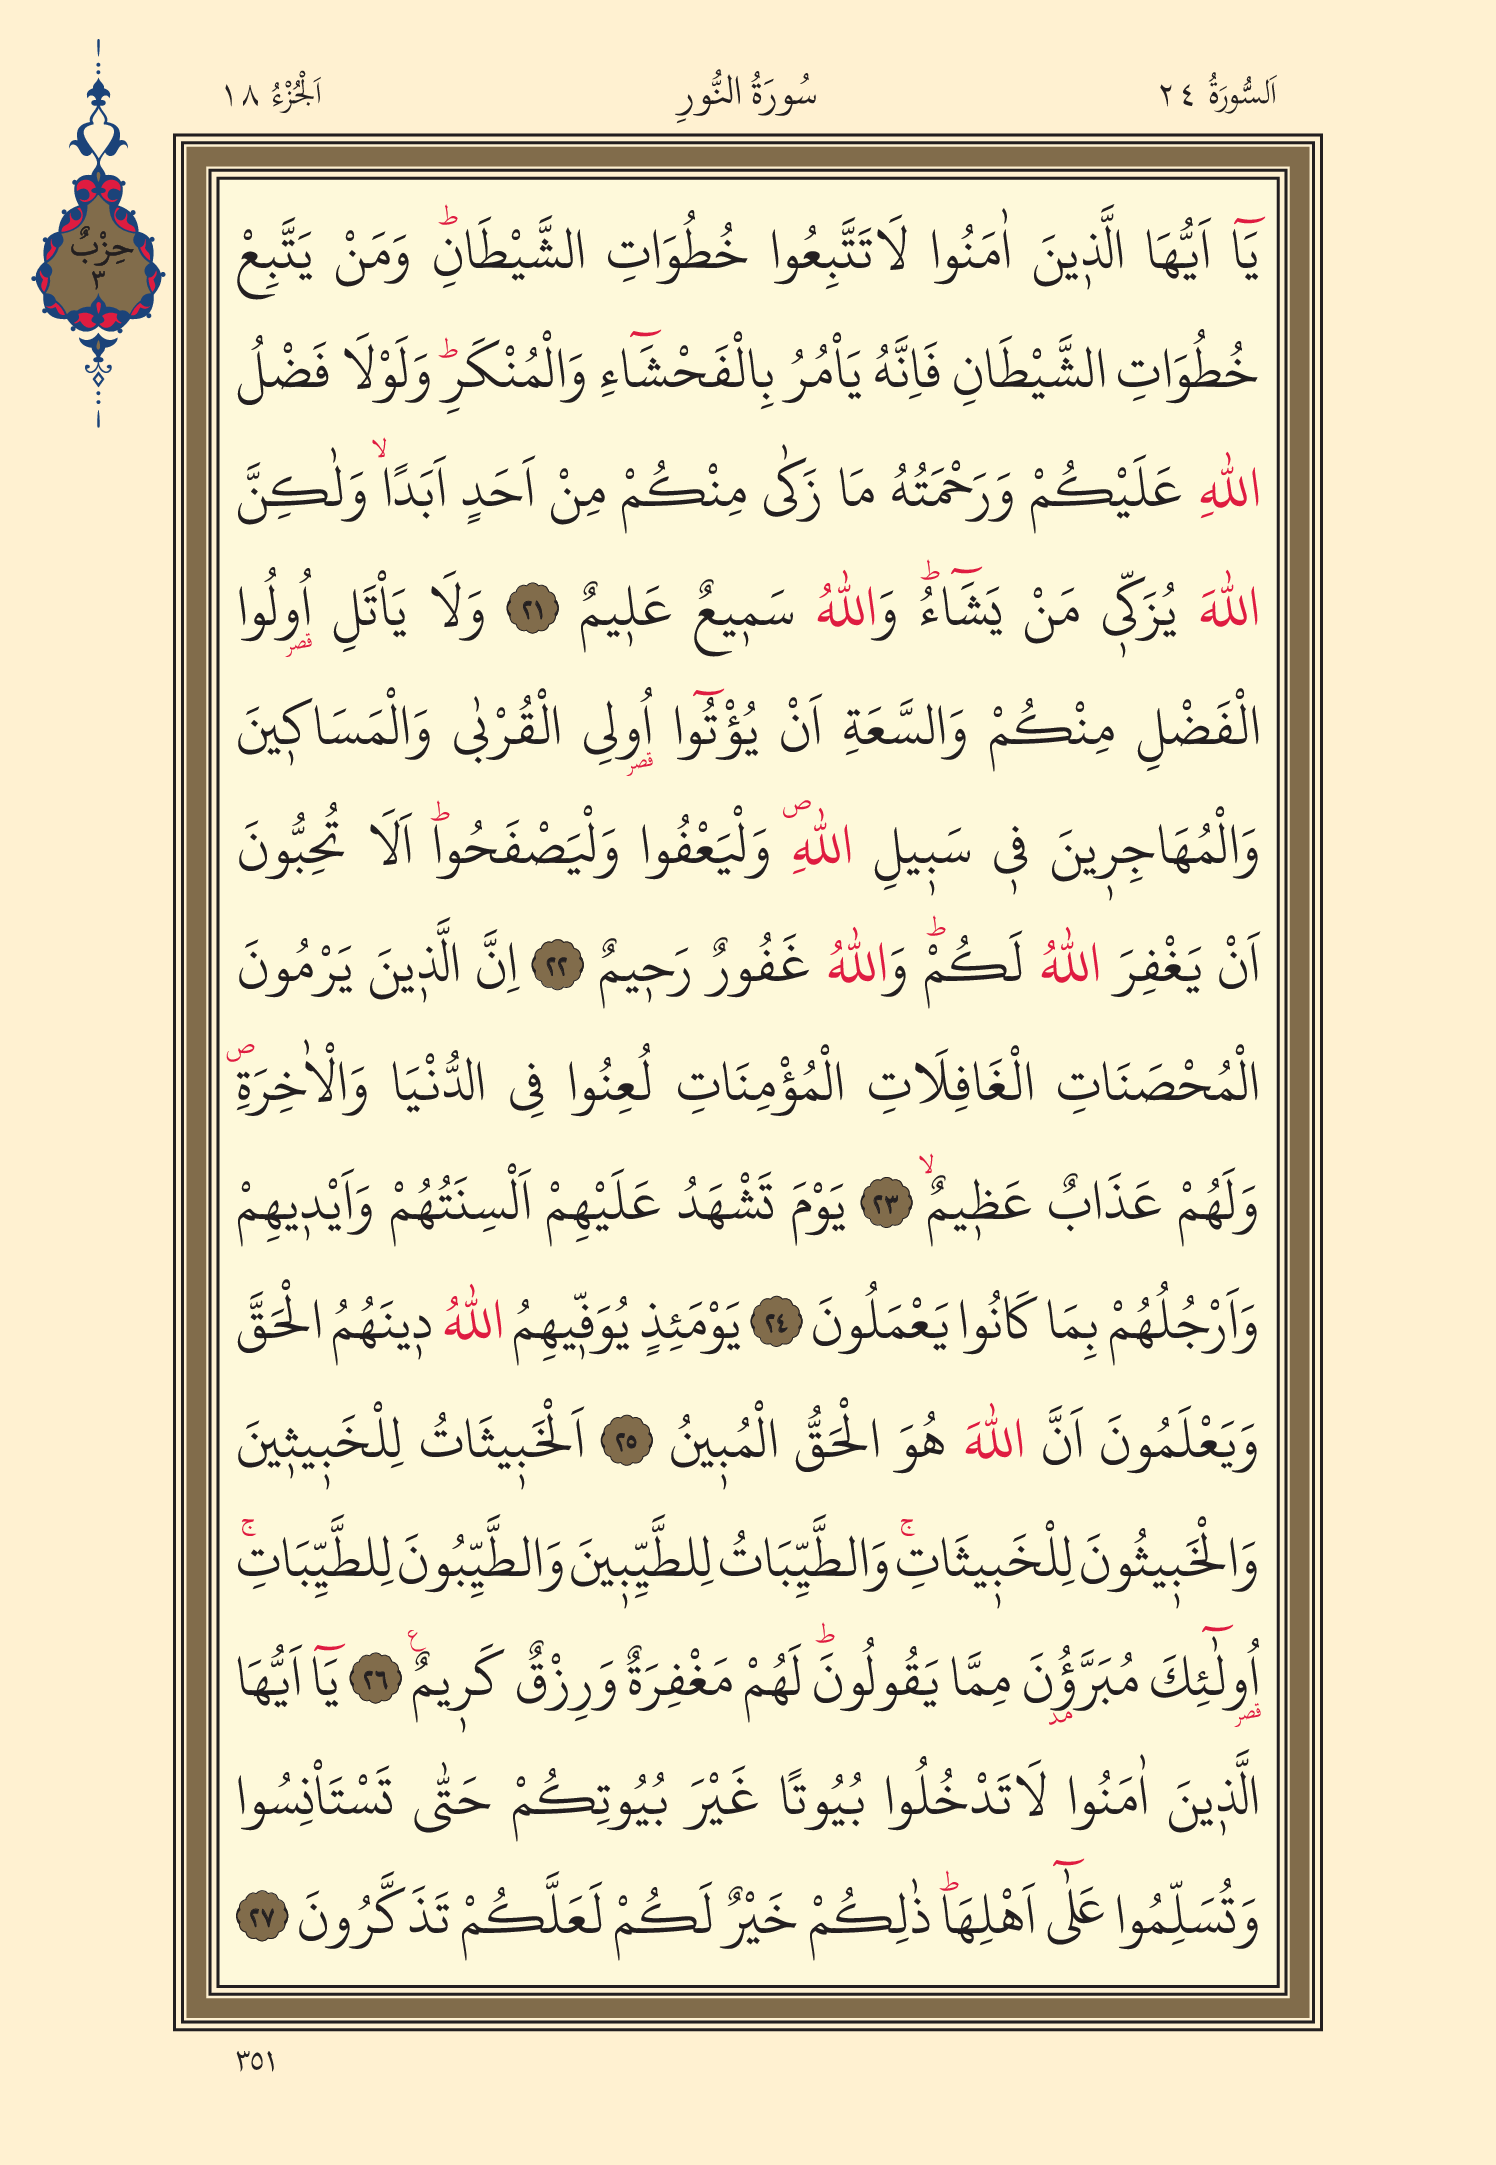 اَلسُّورَةُ ٢٤
سُورَةُ النُّورِ
اَلْجُزْءُ ١٨
حِزْبٌ
٣
يَٓا اَيُّهَا الَّذ۪ينَ اٰمَنُوا لَا تَتَّبِعُوا خُطُوَاتِ الشَّيْطَانِۜ وَمَنْ يَتَّبِعْ
خُطُوَاتِ الشَّيْطَانِ فَاِنَّهُ يَاْمُرُ بِالْفَحْشَٓاءِ وَالْمُنْكَرِۜ وَلَوْلَا فَضْلُ
اللّٰهِ عَلَيْكُمْ وَرَحْمَتُهُ مَا زَكٰى مِنْكُمْ مِنْ اَحَدٍ اَبَدًاۙ وَلٰكِنَّ
اللّٰهَ يُزَكّ۪ي مَنْ يَشَٓاءُۜ وَاللّٰهُ سَم۪يعٌ عَل۪يمٌ ﴿٢١﴾ وَلَا يَاْتَلِ اُو۬لُوا
الْفَضْلِ مِنْكُمْ وَالسَّعَةِ اَنْ يُؤْتُٓوا اُو۬لِي الْقُرْبٰى وَالْمَسَاك۪ينَ
وَالْمُهَاجِر۪ينَ ف۪ي سَب۪يلِ اللّٰهِۖ وَلْيَعْفُوا وَلْيَصْفَحُواۜ اَلَا تُحِبُّونَ
اَنْ يَغْفِرَ اللّٰهُ لَكُمْۜ وَاللّٰهُ غَفُورٌ رَح۪يمٌ ﴿٢٢﴾ اِنَّ الَّذ۪ينَ يَرْمُونَ
الْمُحْصَنَاتِ الْغَافِلَاتِ الْمُؤْمِنَاتِ لُعِنُوا فِي الدُّنْيَا وَالْاٰخِرَةِۖ
وَلَهُمْ عَذَابٌ عَظ۪يمٌۙ ﴿٢٣﴾ يَوْمَ تَشْهَدُ عَلَيْهِمْ اَلْسِنَتُهُمْ وَاَيْد۪يهِمْ
وَاَرْجُلُهُمْ بِمَا كَانُوا يَعْمَلُونَ ﴿٢٤﴾ يَوْمَئِذٍ يُوَفّ۪يهِمُ اللّٰهُ د۪ينَهُمُ الْحَقَّ
وَيَعْلَمُونَ اَنَّ اللّٰهَ هُوَ الْحَقُّ الْمُب۪ينُ ﴿٢٥﴾ اَلْخَب۪يثَاتُ لِلْخَب۪يث۪ينَ
وَالْخَب۪يثُونَ لِلْخَب۪يثَاتِۚ وَالطَّيِّبَاتُ لِلطَّيِّب۪ينَ وَالطَّيِّبُونَ لِلطَّيِّبَاتِۚ
اُو۬لٰٓئِكَ مُبَرَّؤُ۫نَ مِمَّا يَقُولُونَۜ لَهُمْ مَغْفِرَةٌ وَرِزْقٌ كَر۪يمٌ۟ ﴿٢٦﴾ يَٓا اَيُّهَا
الَّذ۪ينَ اٰمَنُوا لَا تَدْخُلُوا بُيُوتًا غَيْرَ بُيُوتِكُمْ حَتّٰى تَسْتَاْنِسُوا
وَتُسَلِّمُوا عَلٰٓى اَهْلِهَاۜ ذٰلِكُمْ خَيْرٌ لَكُمْ لَعَلَّكُمْ تَذَكَّرُونَ ﴿٢٧﴾
٣٥١